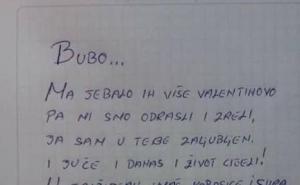 BUBO...
MA JEBALO IH VIŠE VALENTINOVO
PA MI SMO ODRASLI I ZRELI,
JA SAM U TEBE ZALJUBLJEN.
I JUČE I DANAS I ŽIVOT CIJELI!